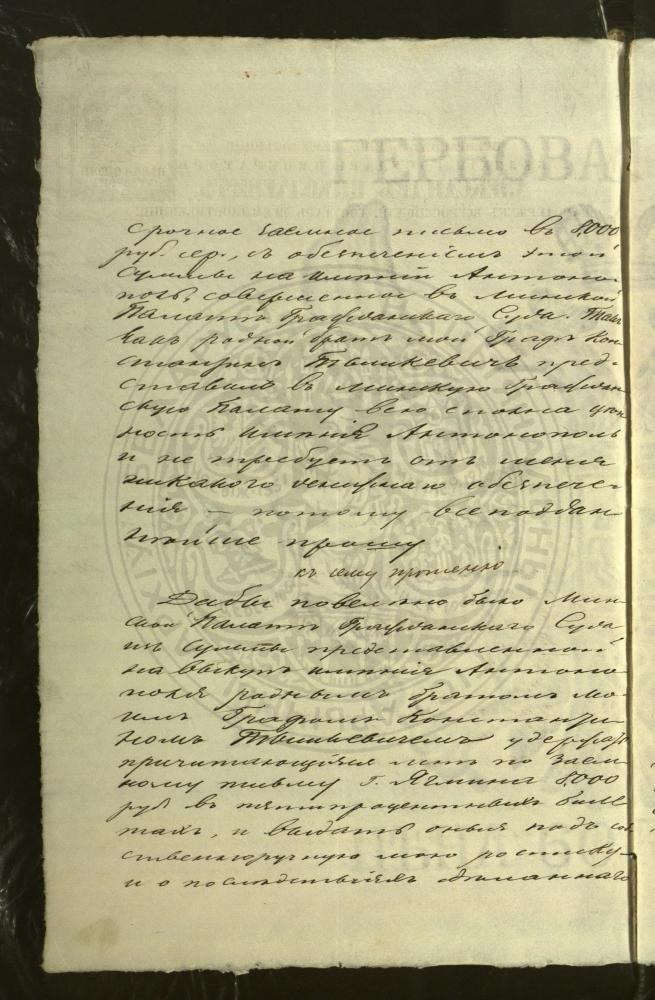 срочное заемное письмо въ 8,000
руб. сер., съ обезпеченіемъ этой
суммы на имѣніи Антоно-
поль, совершенное въ Минской
Палатѣ Гражданскаго Суда. Такъ
какъ родной братъ мой Графъ Кон-
стантинъ Тышкевичъ пред-
ставилъ въ Минскую Граждан-
скую Палату всю сполна цѣн-
ность имѣнія Антонополь
и не требуетъ отъ меня
никакого денежнаго обезпече-
нія — потому всеподдан-
нѣйше прошу
къ сему прошенію
Дабы повелѣно было Мин-
ской Палатѣ Гражданскаго Суда
изъ суммы представленной
на выкупъ имѣнія Антоно-
поля роднымъ братомъ мо-
имъ Графомъ Константи-
номъ Тышкевичемъ удержать
причитающіяся мнѣ по заем-
ному письму Г. Ягмина 8,000
руб. въ пятипроцентныхъ биле-
тахъ, и выдать оныя подъ соб-
ственноручную мою росписку
и о послѣдствіяхъ сдѣланнаго